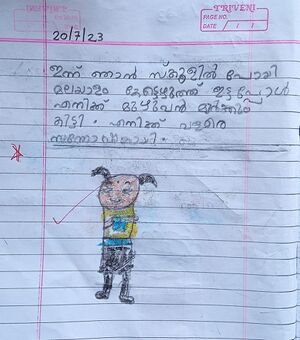 TRIVENI
PAGE NO.
DATE / /
20/7/23
ഇന്ന് ഞാൻ സ്കൂളിൽ പോയി
മലയാളം കേട്ടെഴുത്ത് ഇട്ടപ്പോൾ
എനിക്ക് മുഴുവൻ മാർക്കും
കിട്ടി. എനിക്ക് വളരെ
സന്തോഷമായി.